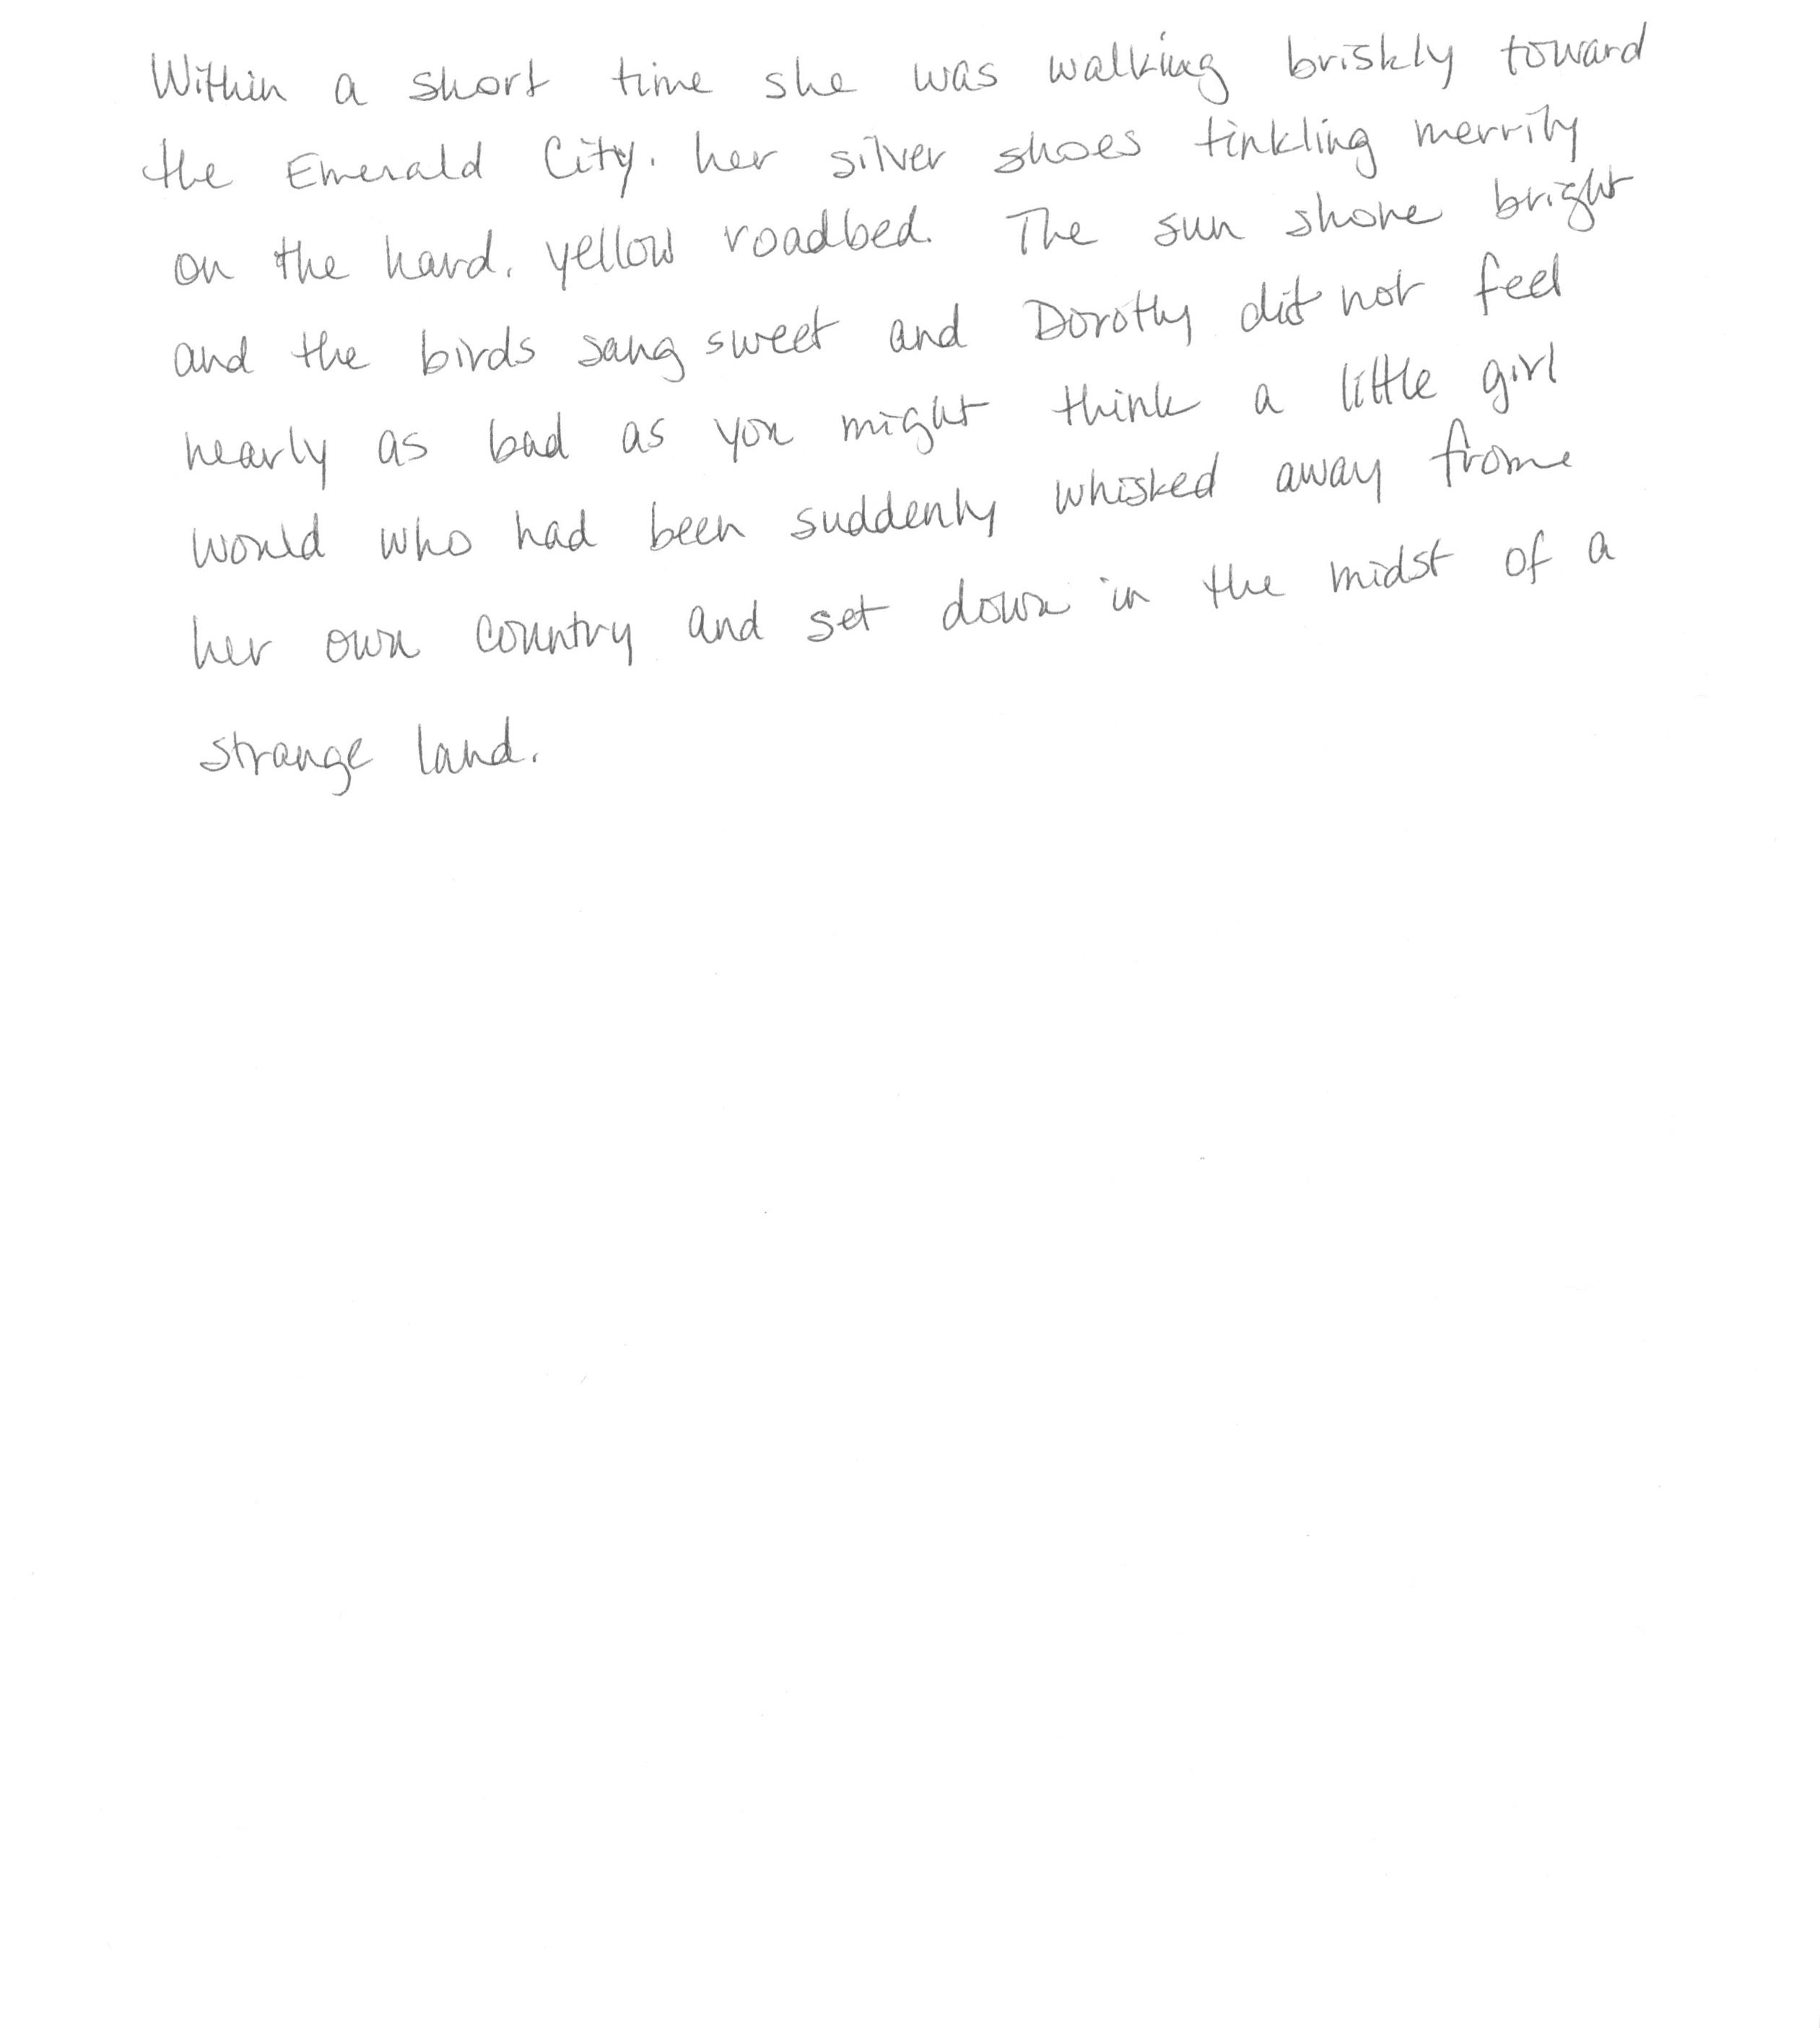 Within a short time she was walking briskly toward
the Emerald City. her silver shoes tinkling merrily
on the hard. yellow roadbed. The sun shone bright
and the birds sang sweet and Dorothy did not feel
nearly as bad as you might think a little girl
would who had been suddenly whisked away from
her own country and set down in the midst of a
strange land.